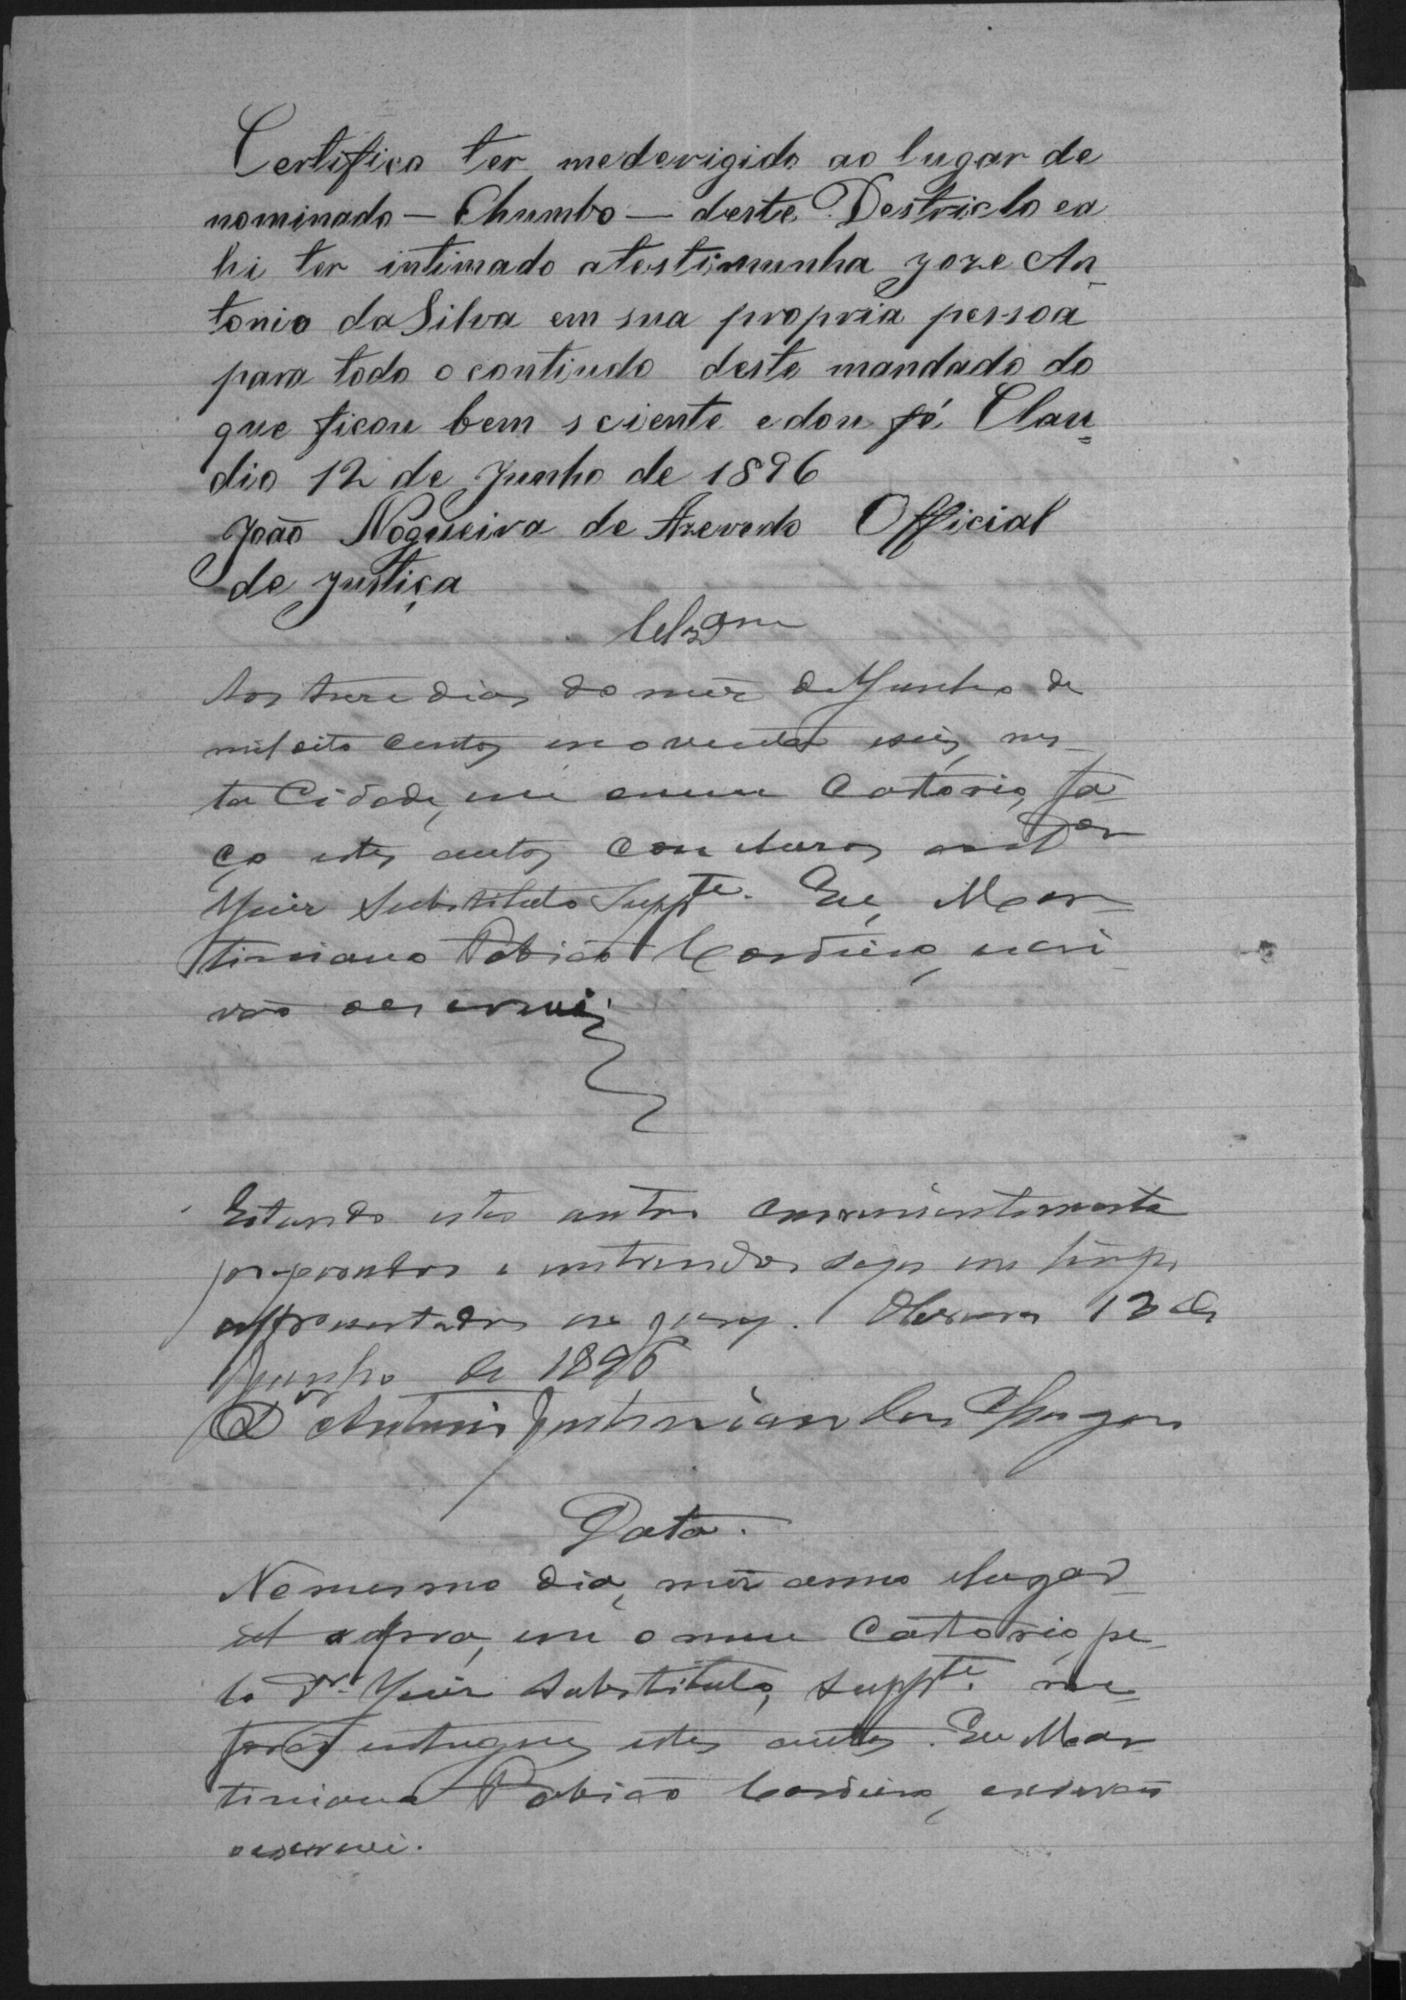 Certifico ter mederigido ao lugar de
nominado — Chumbo — deste Destricto ea
hi ter intimado atestimunha Joze An-
tonio da Silva em sua propria pessoa
para todo o contiudo deste mandado do
que ficou bem sciente e dou fé Clau=
dio 12 de Junho de 1896
João Nogueira de Azevedo Official
de Justiça
Clzam
Aos treze dias do mez de Junho de
mil oito centos enoventa eseis, nes-
ta Cidade, em o meu Cartorio, fa-
ço estes autos conclusos ao Dor
Juiz Substituto Suppte. Eu, Mar-
timiano Cordeiro, escri-
vão oescrevi.
Estando estes autos convenientemente
preparados e sejam em tempo
apresentados no jury. 13 de
Junho de 1896
Dr Antonio Justiniano das Chagas
Data.
Nomesmo dia, mez anno elugar
retro, em o meu Cartorio, pe-
lo Dr. Juiz Substituto, Suppte. me
forão entregues estes autos. Eu Mar-
timiano Cordeiro, escrivão
oescrevi.